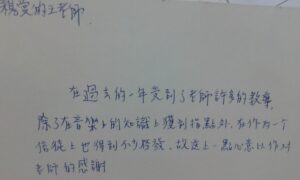 親愛的王老師
在過去的一年受到了老師許多的教導
除了在音樂上的知識上獲到指點外,在作為一個
信徒上也得到不少啓發,故送上一點心意以作對
老師的感謝